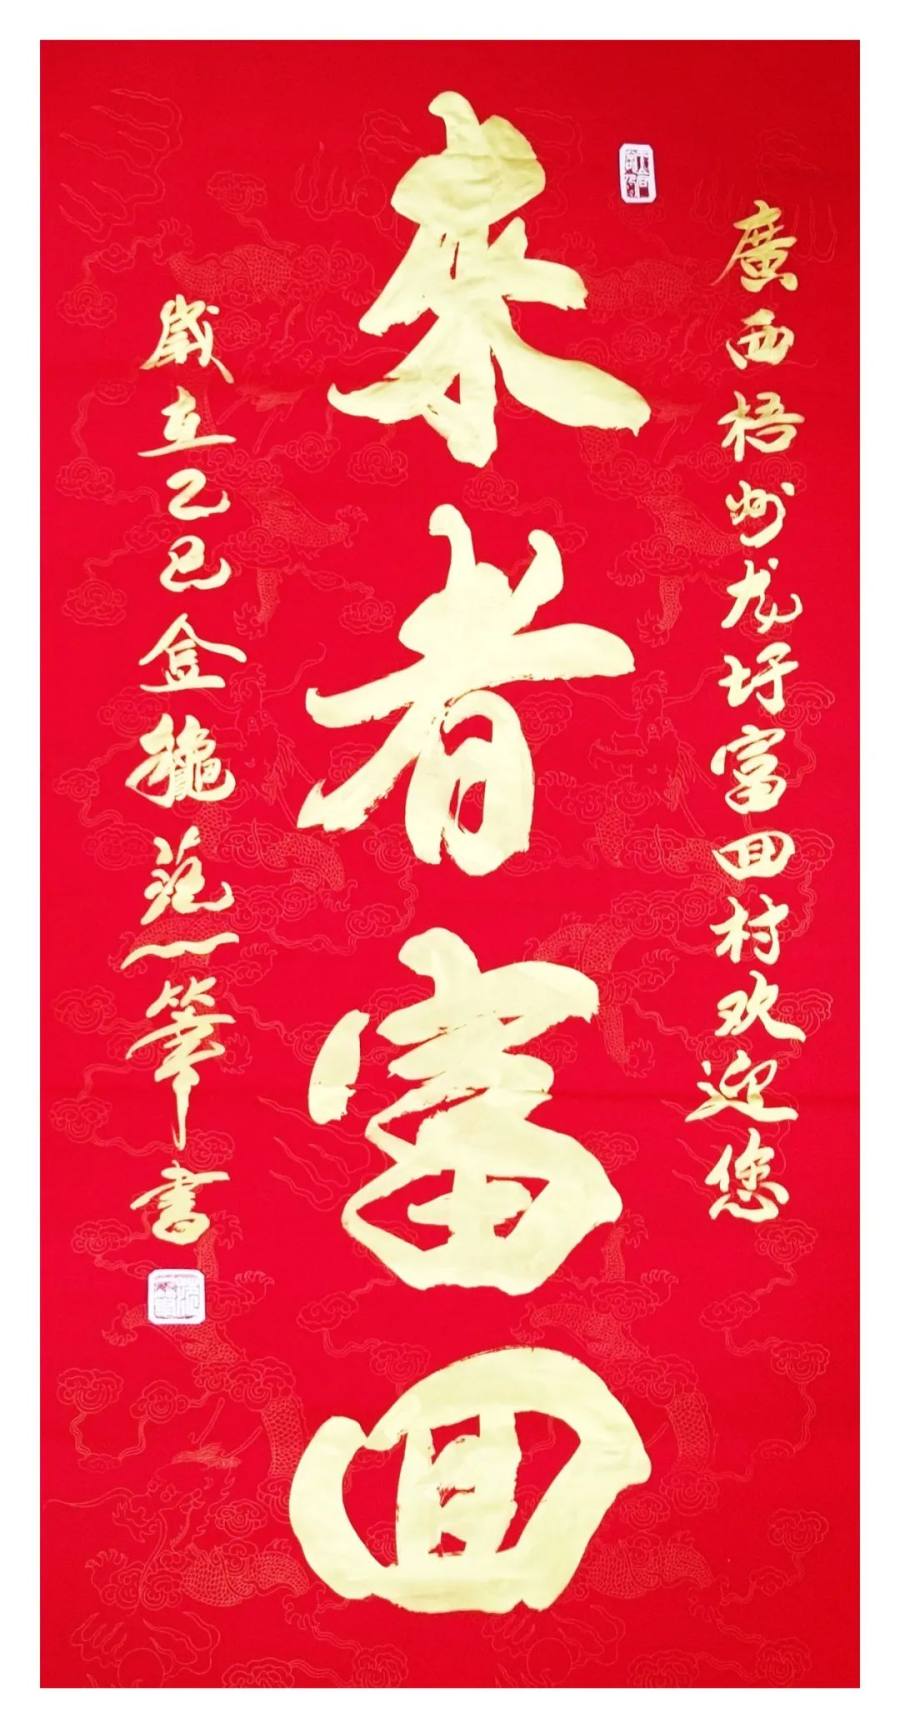 廣西梧州龙圩富回村欢迎您
来者富回
歲在乙巳金龝范一筆書